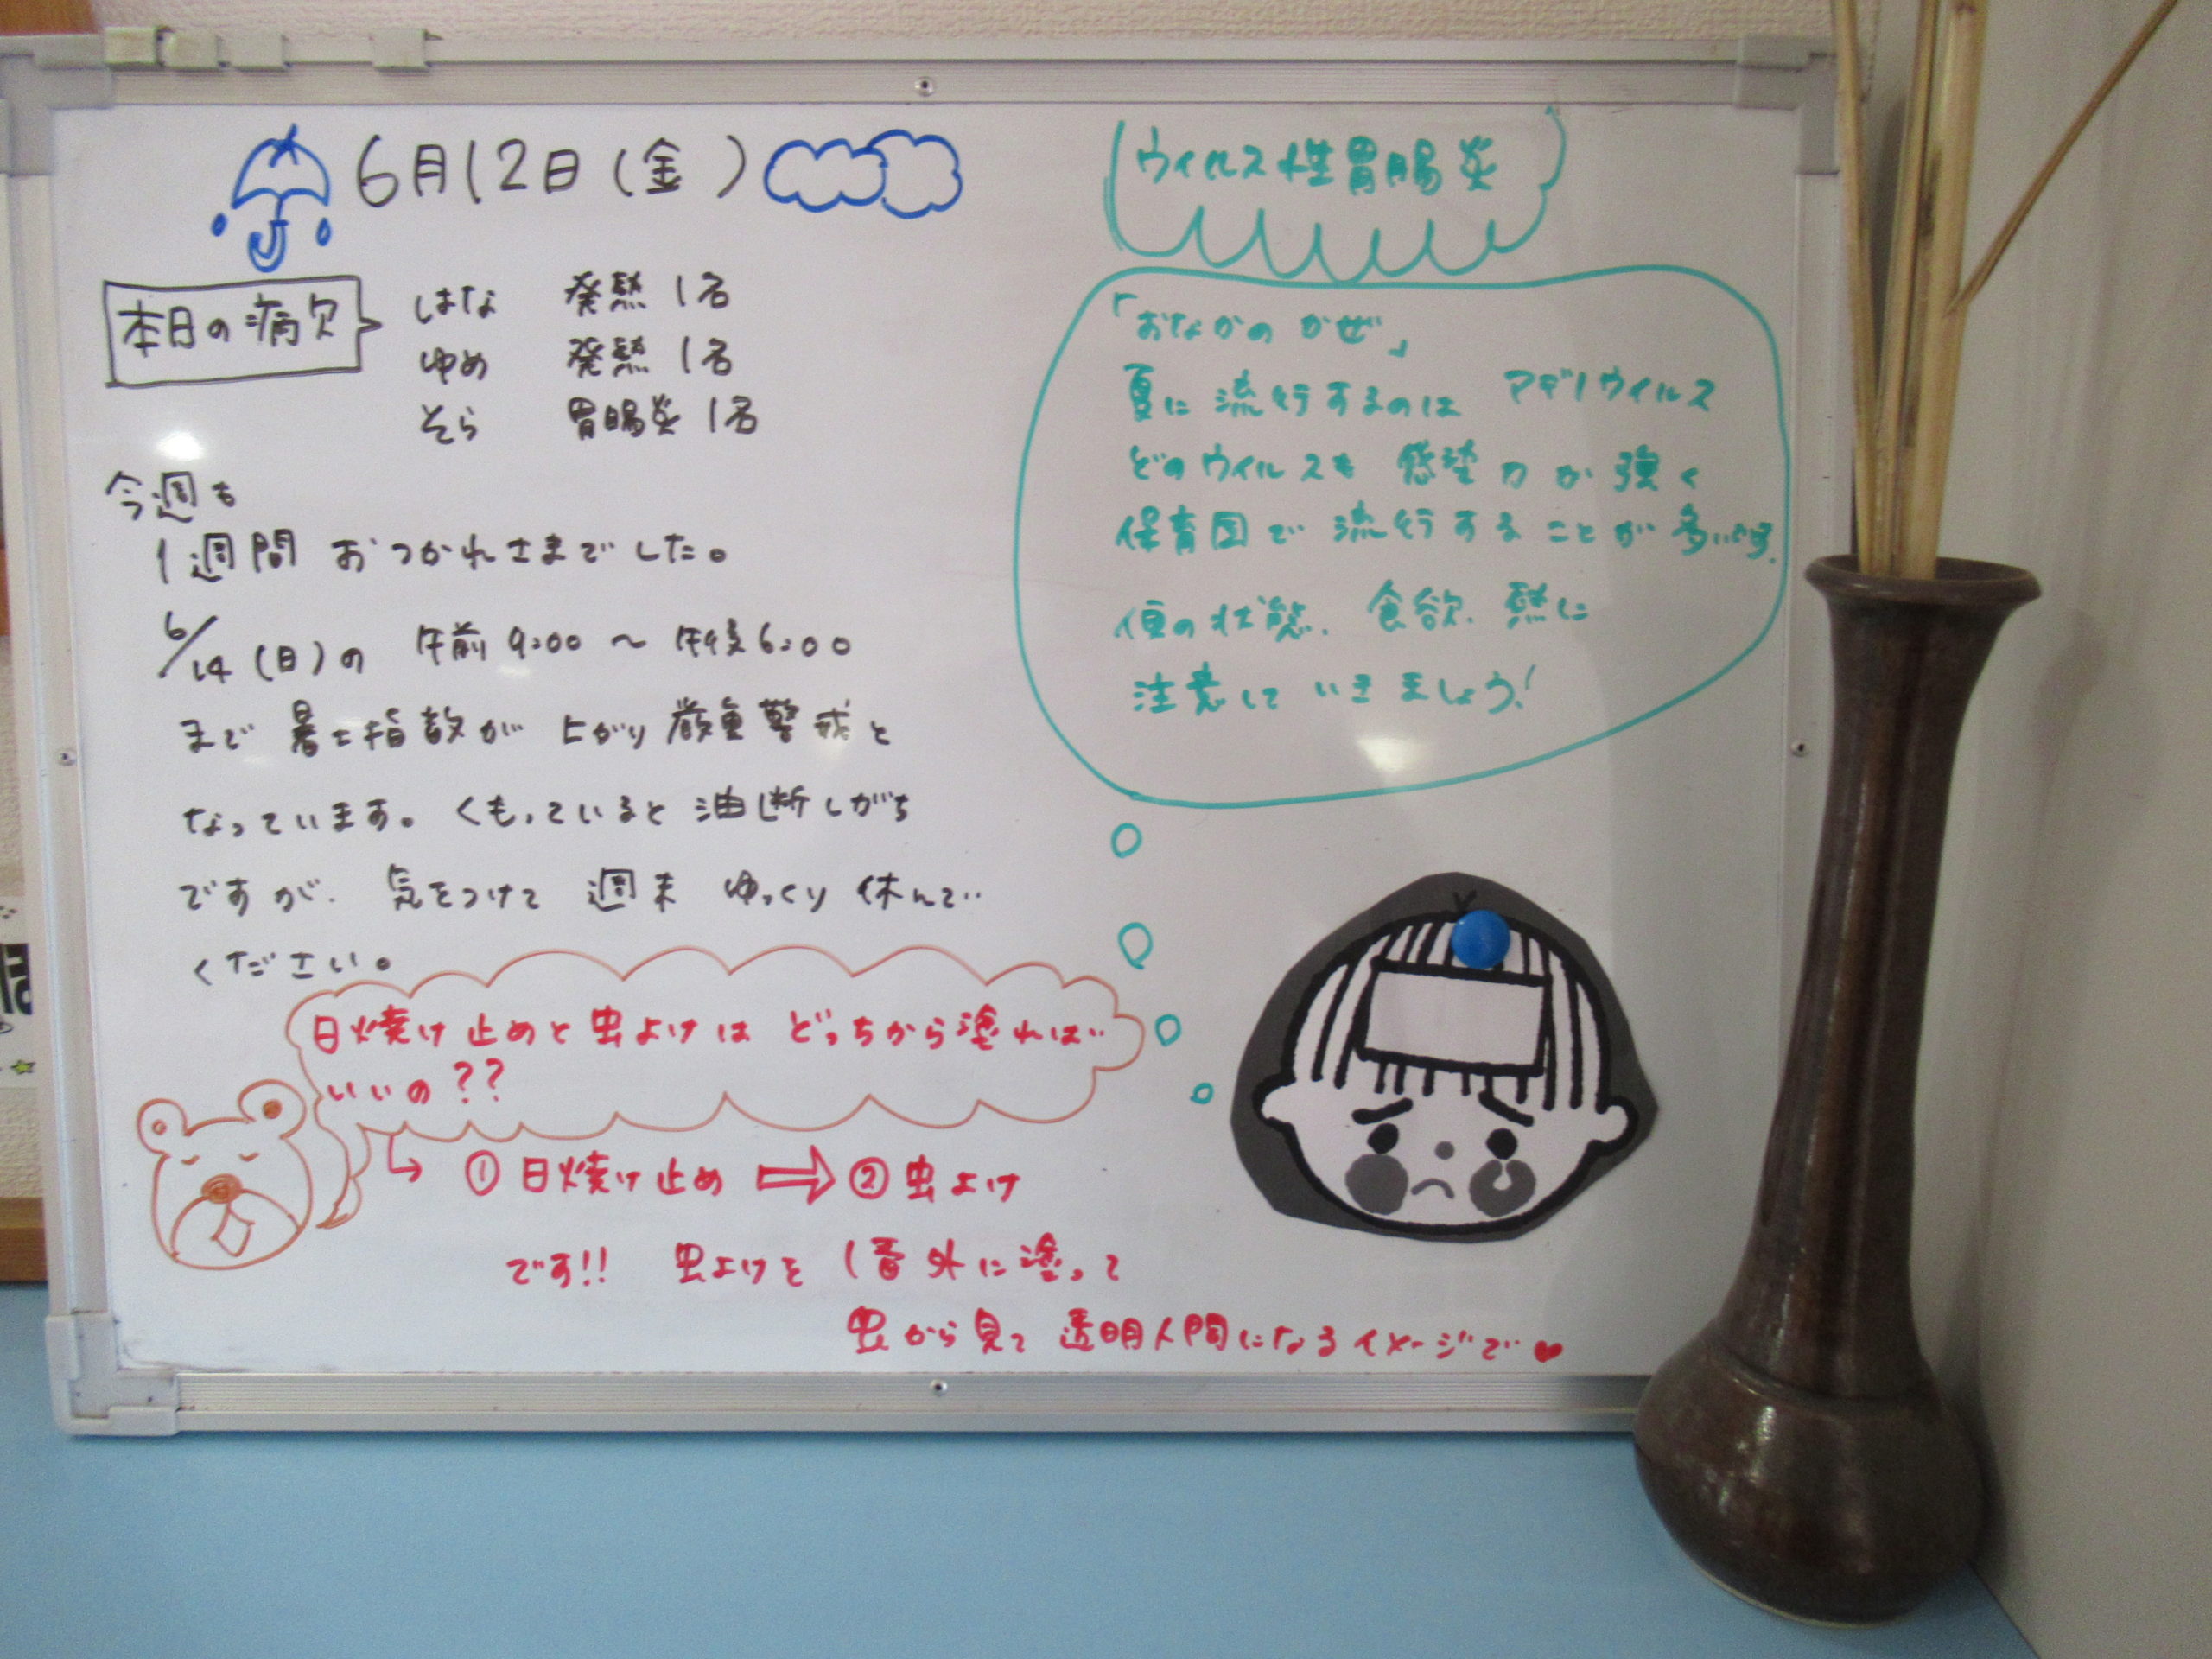 6月12日(金)
本日の病欠
はな 発熱 1名
ゆめ 発熱 1名
そら 胃腸炎 1名
今週も
1週間 おつかれさまでした。
6/14(日)の 午前9:00〜午後6:00
まで 暑さ指数が 上がり厳重警戒と
なっています。くもっていると油断しがち
ですが、気をつけて 週末 ゆっくり休んで
ください。
日焼け止めと虫よけは どっちから塗れば
いいの??
①日焼け止め ⇒ ②虫よけ
です!! 虫よけを 1番外に塗って
虫から見て 透明人間になるイメージで♥
ウィルス性胃腸炎
「おなかの かぜ」
夏に流行するのは アデノウイルス
どのウイルスも 感染力が強く
保育園で 流行することが多い
便の状態、食欲、熱に
注意して いきましょう!